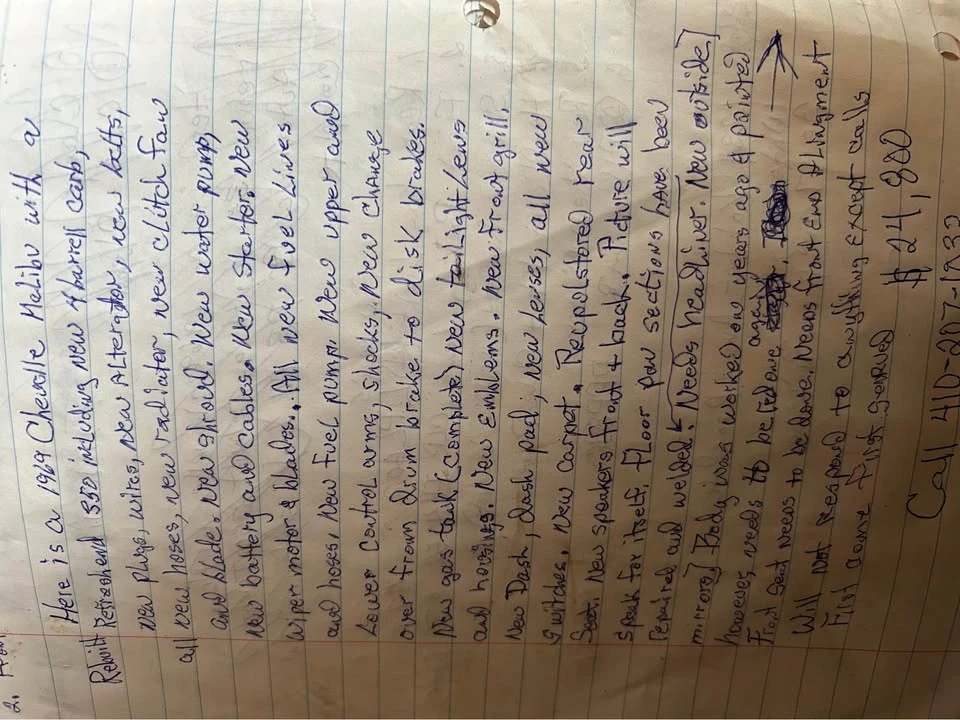 2. From
Here is a 1969 Chevelle Malibu with a
Rebuilt Refreshend 350 including New 4 barrell carb,
New plugs, wires, New Alterator, new belts,
all new hoses, new radiator, new clitch Fan
and blade. New shroud. New water pump,
New battery and Cables. New Starter. New
Wiper motor & blades.. All new Fuel Lines
and hoses, New Fuel pump. New upper and
Lower Control arms, shocks, New change
over From drum brake to disk brakes.
New gas tank (complete) New tailight Lens
and housings. New Emblems. New Front grill,
New Dash, dash pad, new lenses, all new
switches, new Carpet. Reupolstored rear
Seat. New speakers Front & back. Picture will
speak for itself. Floor pan sections have been
repaired and welded. Needs headliner. New outside
mirrors] Body was worked on years ago & painted
however, needs to be redone again,
Front Seat needs to be done. Needs Front End Alingment
Will Not respond to anything Except calls
First come First served
$24,800
Call 410-207-1033